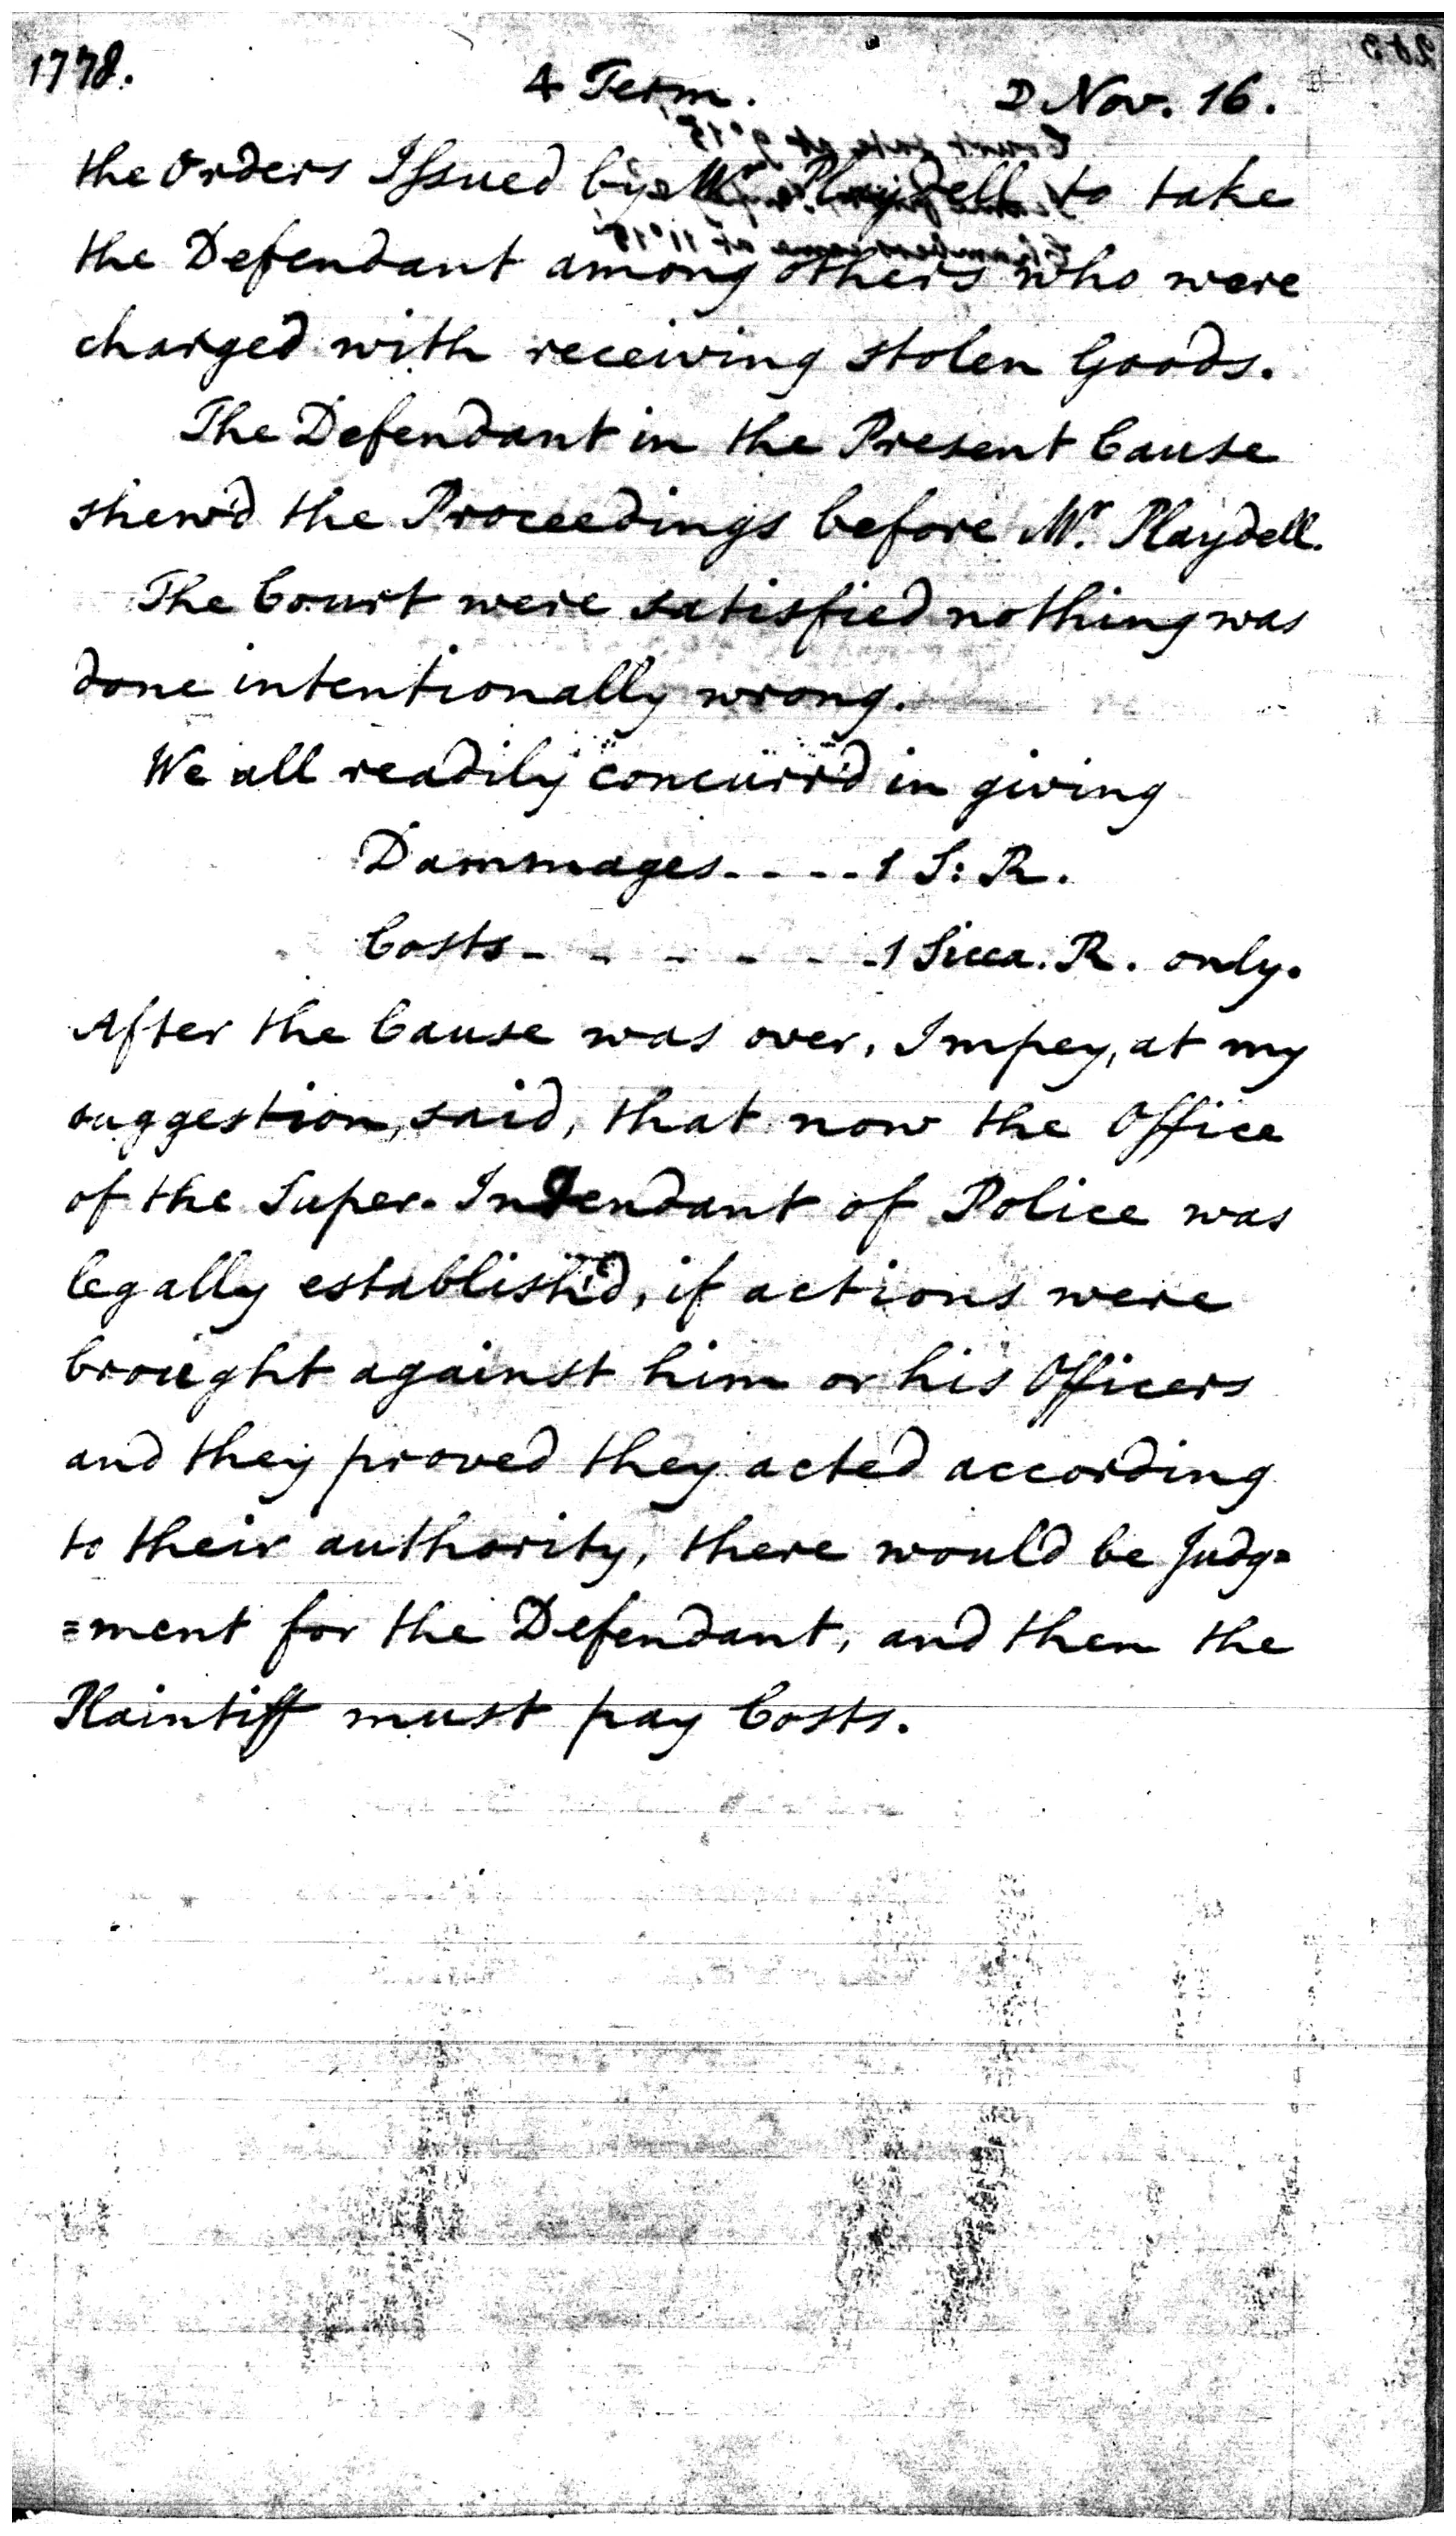 1778. 4 Term. D Nov. 16.
the Orders Issued by Mr. Playdell to take
the Defendant among others who were
charged with receiving stolen Goods.
The Defendant in the Present Cause
shew'd the Proceedings before Mr. Playdell.
The Court were satisfied nothing was
done intentionally wrong.
We all readily concurr'd in giving
Dammages - - - - 1 S: R.
Costs - - - - - - 1 Sicca. R. only.
After the Cause was over, Impey, at my
suggestion, said, that now the Office
of the Super-Intendant of Police was
legally establish'd, if actions were
brought against him or his Officers
and they proved they acted according
to their authority, there would be Judg=
=ment for the Defendant, and then the
Plaintiff must pay Costs.